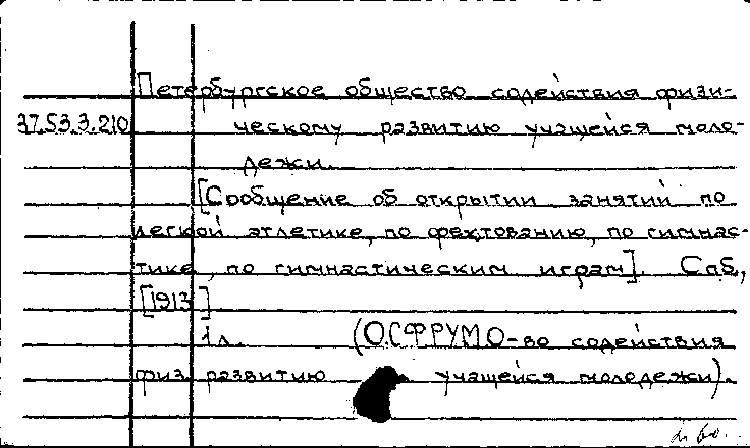 Петербургское общество содействия физи-
37.53.3.210 ческому развитию учащейся моло-
дежи.
[Сообщение об открытии занятий по
легкой атлетике, по фехтованию, по гимнас-
тике, по гимнастическим играм]. Спб.,
[1913]
1л. (О.СФРУМО-во содействия
физ. развитию учащейся молодежи).